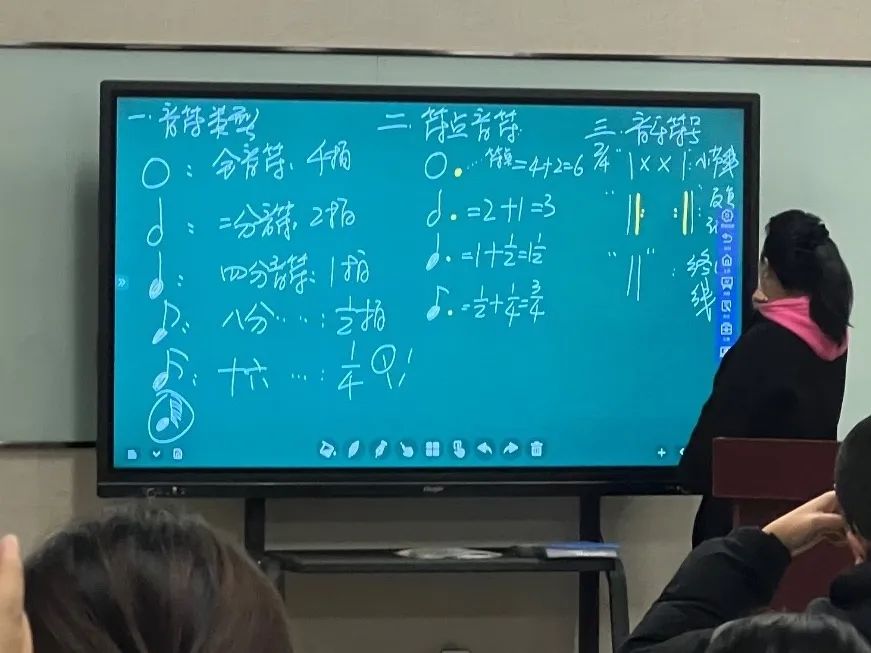 一.音符类型
：全音符：4拍
：二分音符：2拍
：四分音符：1拍
：八分……：1/2拍
：十六…：1/4
二.符点音符
=4+2=6
=2+1=3
=1+1/2=1 1/2
=1/2+1/4=3/4
三.音乐符号
"|××|：小节线
"|| ||"：反复
"||"：终
线